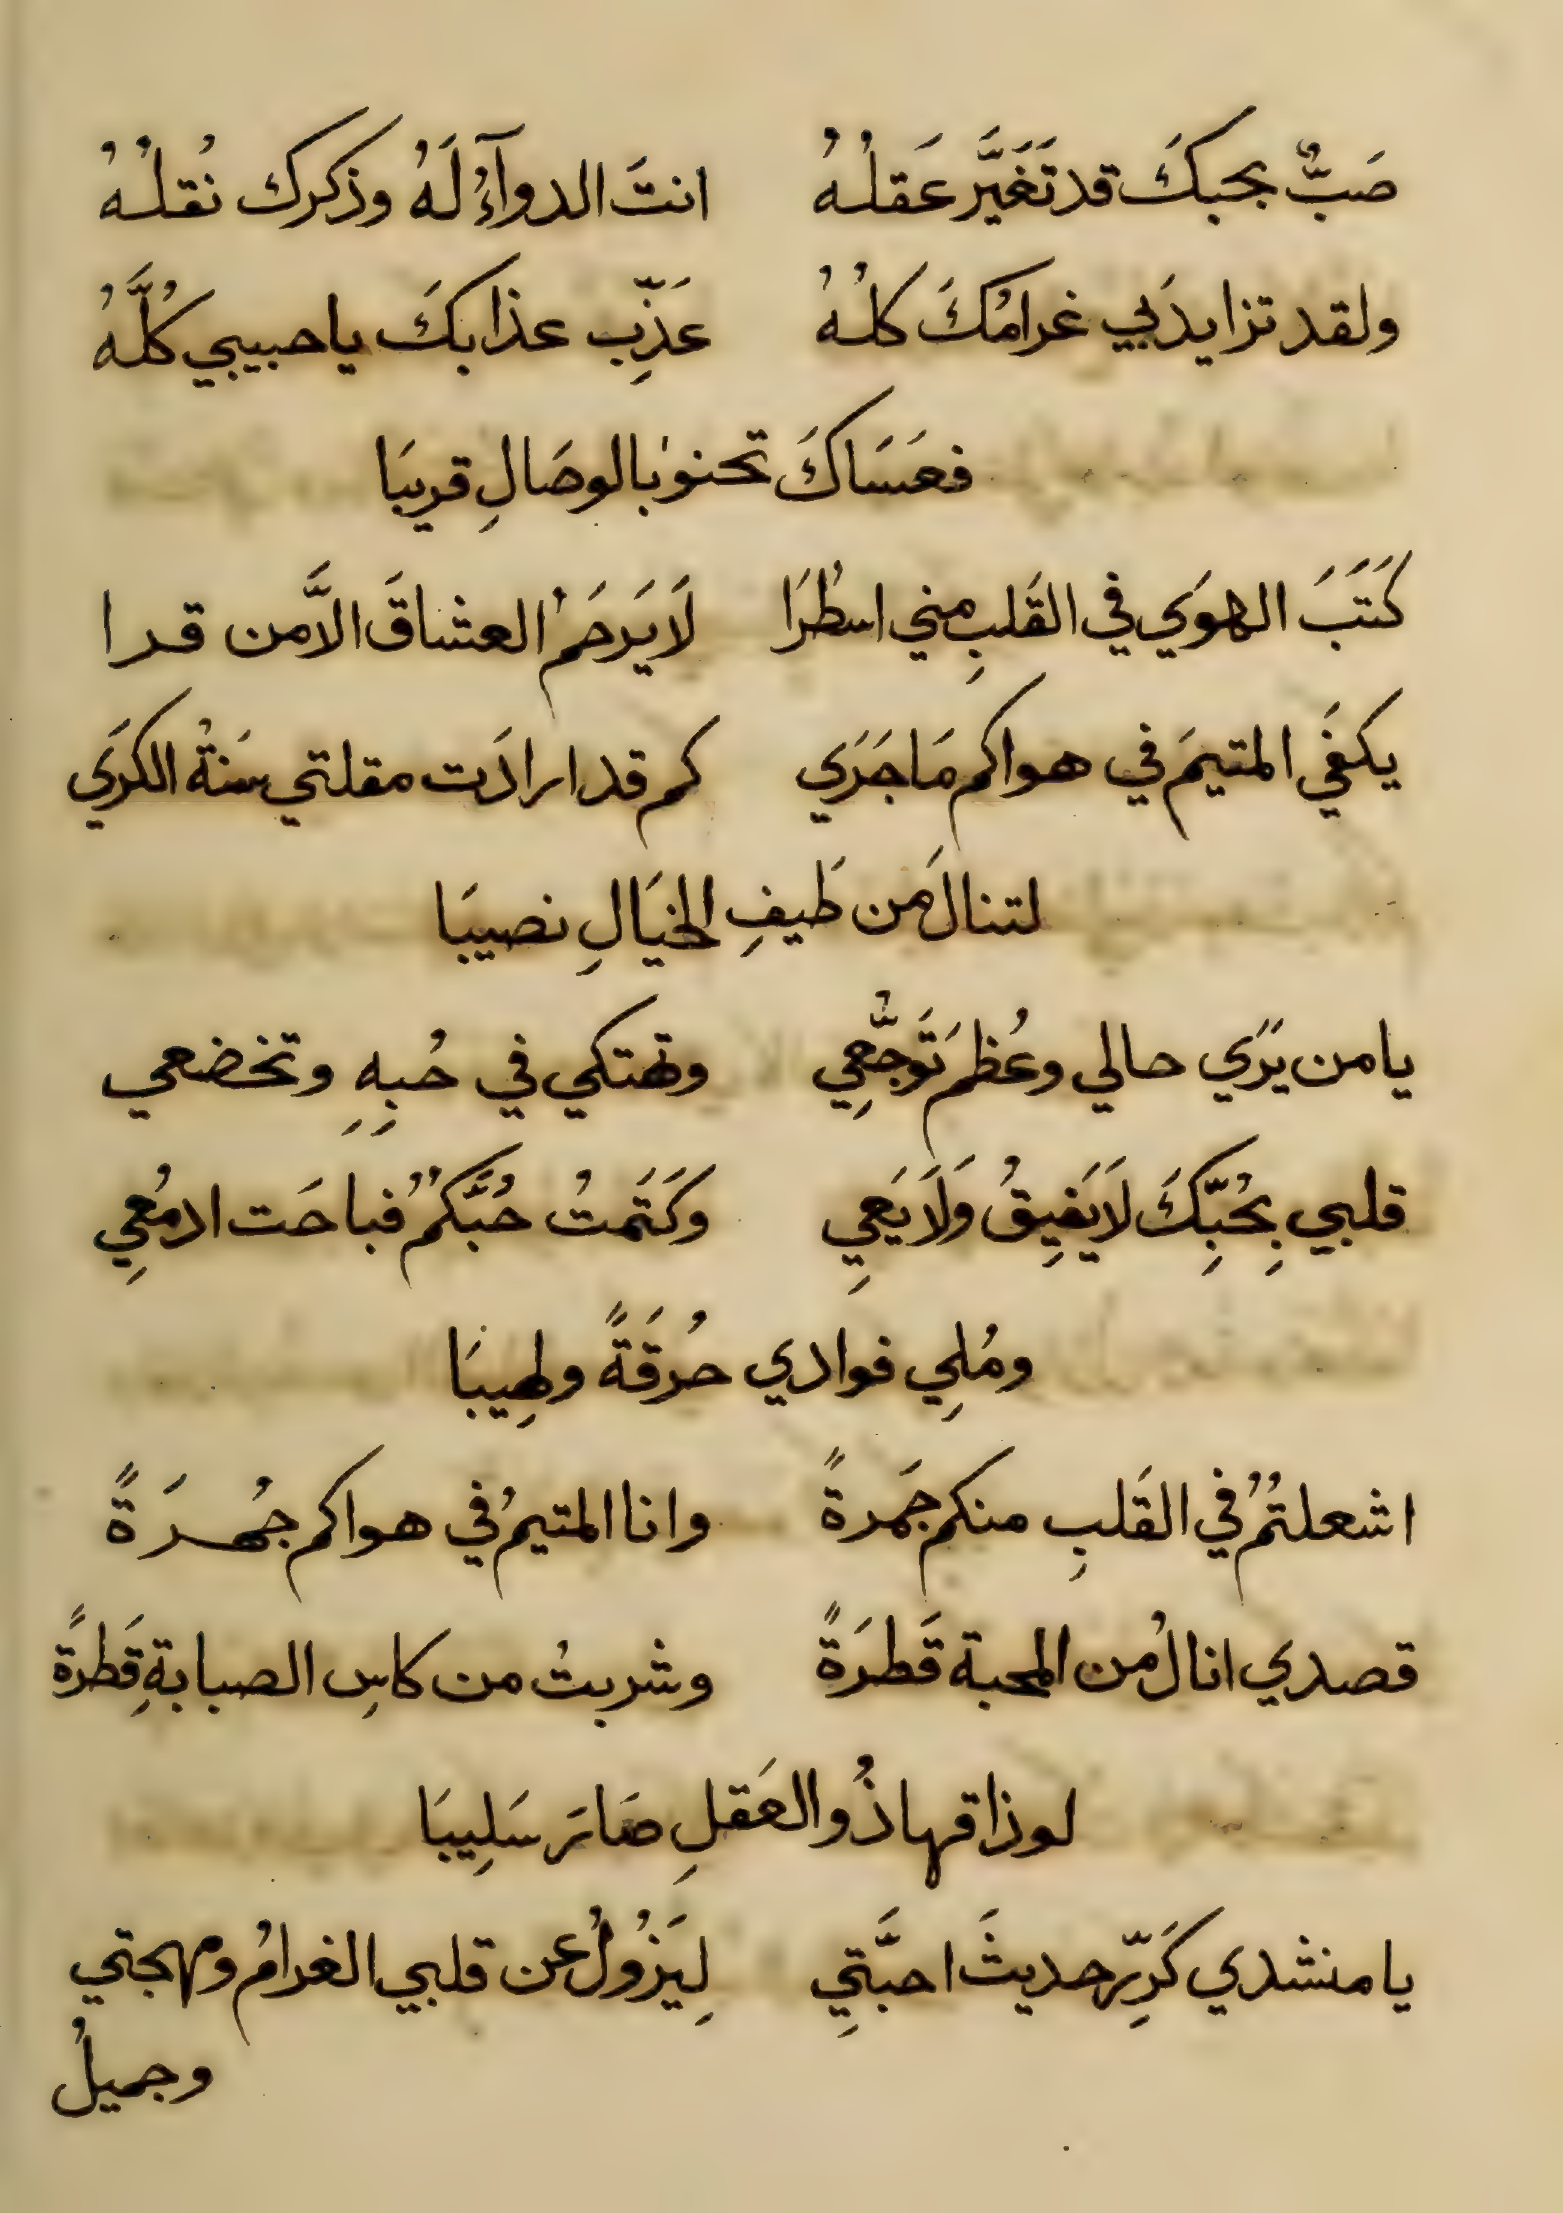 صَبٌّ بحبكَ قد تَغَيَّر عَقلهُ انتَ الدوآءُ لَهُ وذكرك نُقلهُ
ولقد تزايد بَي غرامُكَ كلهُ عَذِّب عذابكَ ياحبيبي كُلَّهُ
فعَسَاكَ تحنو بالوصَالِ قريبَا
كَتَبَ الهوَي في القَلبِ مني اسطُرَا لَا يَرحَمُ العشاقَ الاَّ من قرا
يكفَي المتيمَ في هواكم مَا جَرَي كم قد ارادَت مقلتي سَنةُ الكرَي
لتنالَ من طَيفِ الخيَالِ نصيبَا
يا من يَرَي حالي وعُظمَ تَوَجُّعِي وتهتكي في حُبِهِ وتخضعي
قلبي بِحُبِّكَ لَا يَفِيقُ وَلَا يَعِي وَكَتَمتُ حُبَّكُمُ فباحَت ادمُعِي
ومُلِي فوادي حُرقَةً ولهِيبَا
اشعلتُمُ في القَلبِ منكم جَمرةً وانا المتيمُ في هواكم جُهرَةً
قصدي انالُ من المحبة قَطرَةً وشربتُ من كاسِ الصبابةِ قَطرَةً
لو ذاقها ذُو العَقلِ صَارَ سَلِيبَا
يا منشدي كَرِّر حديثَ احبَّتِي لِيَزُولُ عن قلبي الغرامُ ومهجتي
وجميلُ